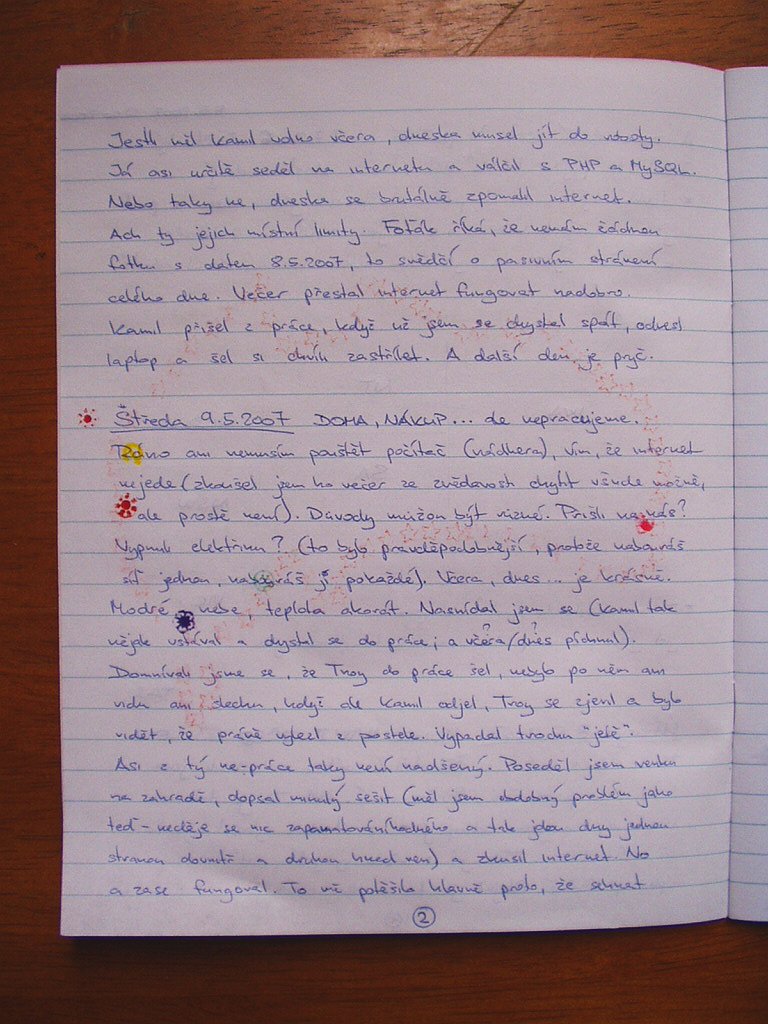 Jestli měl Kamil volno včera, dneska musel jít do roboty.
Já asi určitě seděl na internetu a válčil s PHP a MySQL.
Nebo taky ne, dneska se brutálně zpomalil internet.
Ach ty jejich místní limity. Foťák říká, že nemám žádnou
fotku s datem 8.5.2007, to svědčí o pasivním strávení
celého dne. Večer přestal internet fungovat nadobro.
Kamil přišel z práce, když už jsem se chystal spát, odnesl
laptop a šel si chvíli zastřílet. A další den je pryč.
Středa 9.5.2007 DOHA, NÁKUP... ale nepracujeme.
Ráno ani nemusím pouštět počítač (nádhera), vím, že internet
nejede (zkoušel jsem ho večer ze zvědavosti chytit všude možně,
ale prostě není). Důvody můžou být různé. Přišli na nás?
Vypnuli elektřinu? (to bylo pravděpodobnější, protože nabouráš
síť jednou, nabouráš ji pokaždé). Včera, dnes... je krásně.
Modré nebe, teplota akorát. Nasnídal jsem se (Kamil tak
nějak vstával a chystal se do práce; a včera?/dnes? píchnul).
Domnívali jsme se, že Troy do práce šel, nebylo po něm ani
vidu ani slechu, když ale Kamil odjel, Troy se zjevil a bylo
vidět, že právě vylezl z postele. Vypadal trochu "jetě".
Asi z tý ne-práce taky není nadšený. Poseděl jsem venku
na zahradě, dopsal minulý sešit (měl jsem obdobný problém jako
teď - neděje se nic zapamatováníhodného a tak jdou dny jednou
stranou dovnitř a druhou hned ven) a zkusil internet. No
a zase fungoval. To mě potěšilo hlavně proto, že sehnat
2